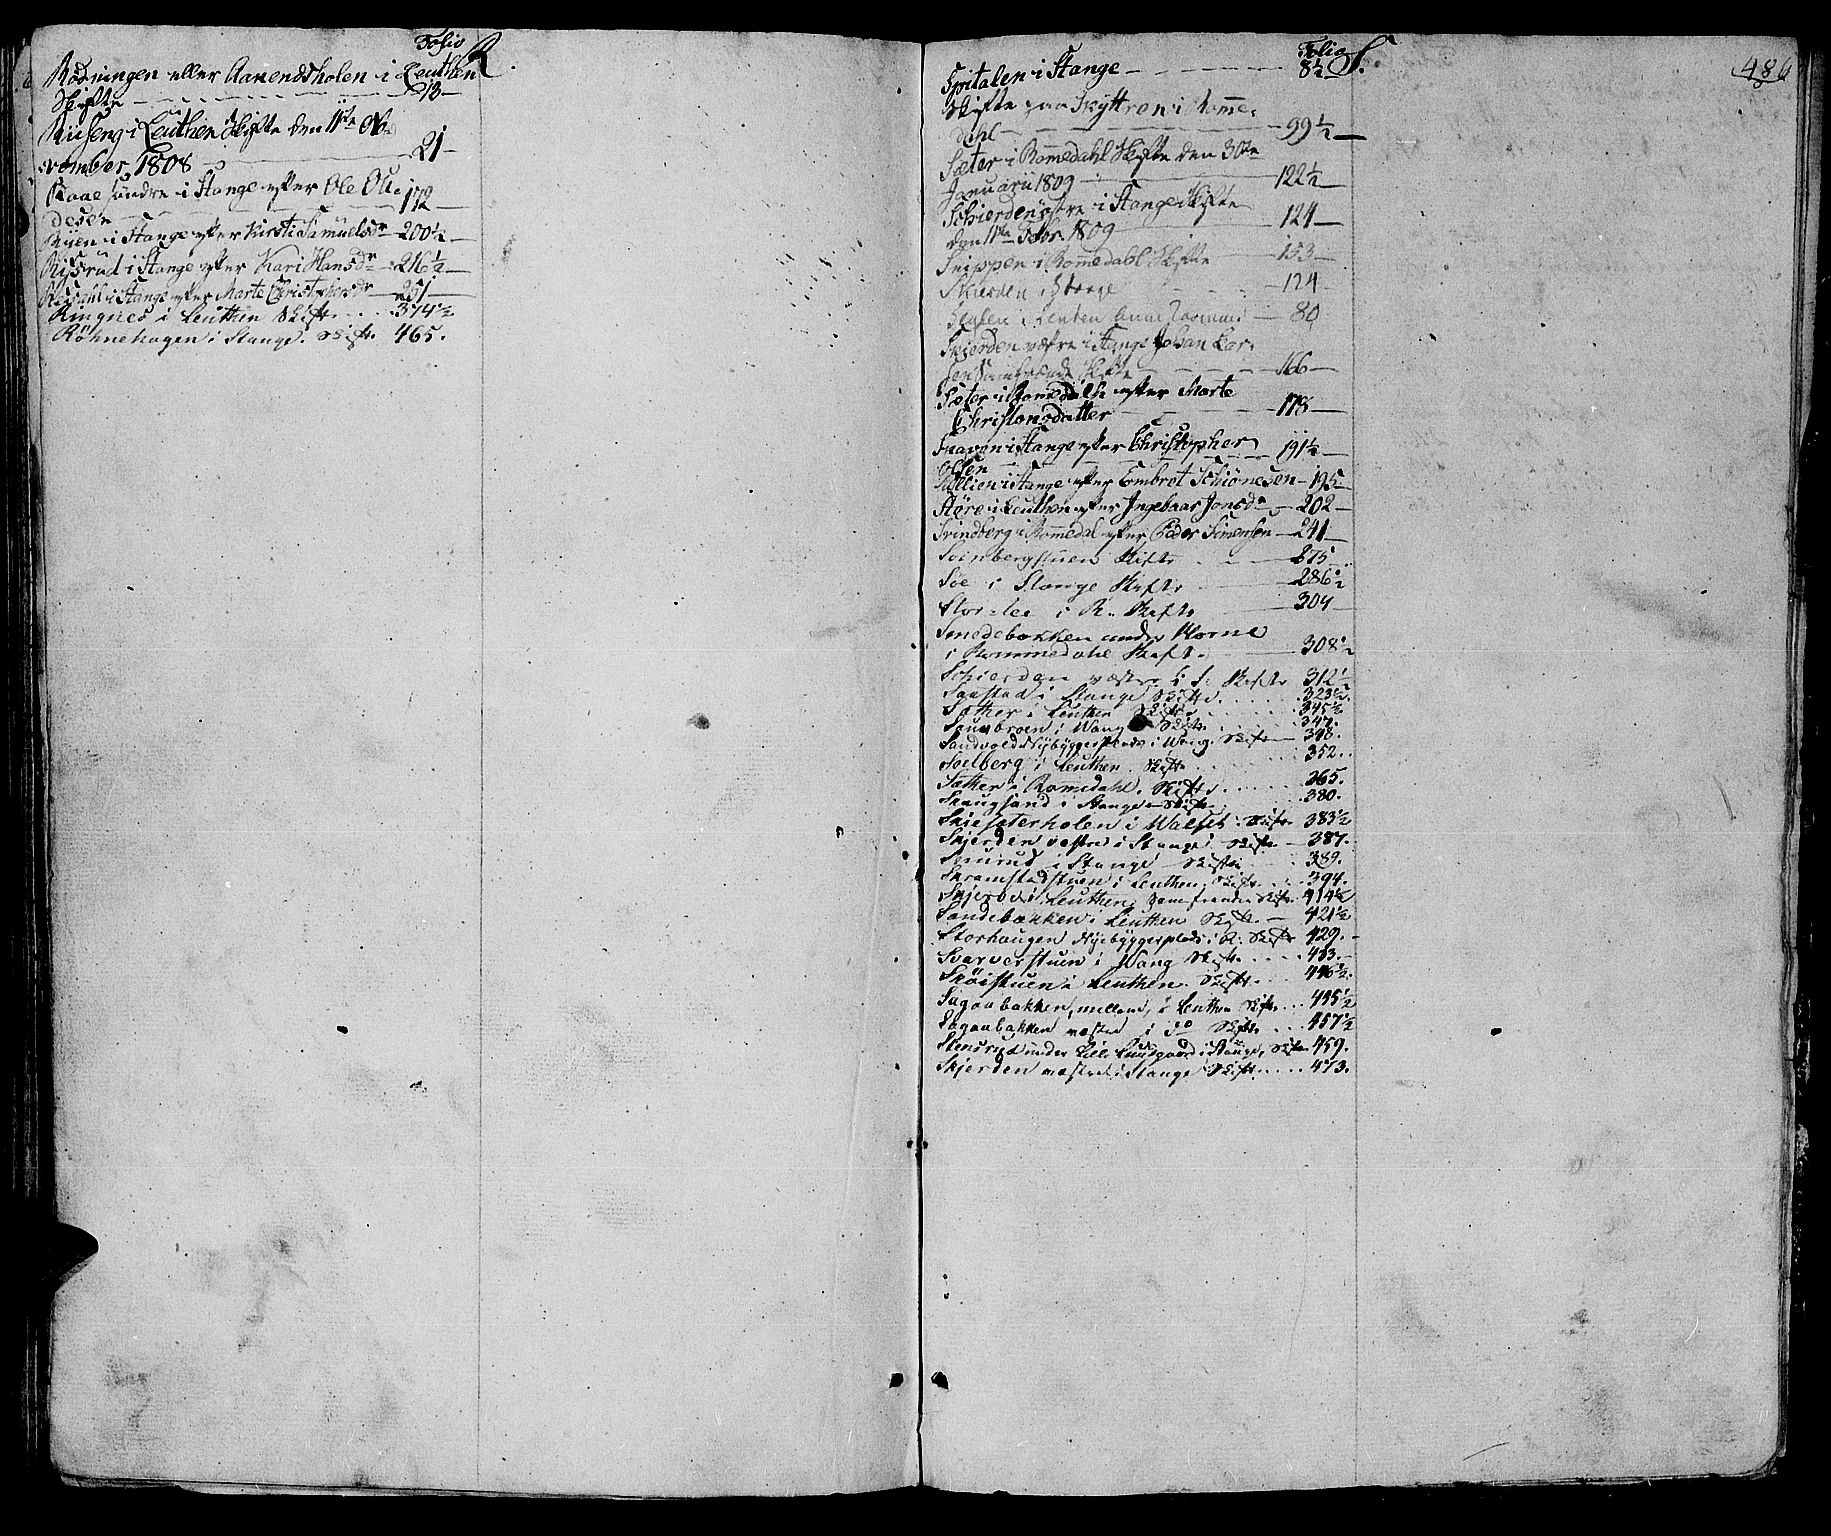 Folio R.
Rødningen eller Aanendsholen i Leuthen
Skifte 13
Riiseng i Leuthen Skifte den 11te No
vember 1808 21
søndre i Stange efter Ole Ole
172
Ryen i Stange efter Kirsti Samuelsdr 200½
Rifsrud i Stange efter Kari Hansdr 216½
i Stange efter Marte Christophersdr 251
Ringnes i Leuthen Skifte 374½
Røhnehagen i Stange. Skifte 465.
Folio S.
486
Spitalen i Stange 8½
Skifte paa Skyttren i Romme
dahl 99½
Sæter i Romedahl Skifte den 30te
Januarii 1809 122½
Schierden østre i Stange Skifte
den 11te Febr. 1809 124
Snippen i Romedahl Skifte 153
Skierden i Stange 124
i Leuten 80
Skjerden vestre i Stange Johan Lar
Skifte 166
Sæter i Romedahl efter Marte
Christensdatter 178
i Stange efter Christopher
Olsen 191½
i Stange efter Embret 195
Støre i Leuthen efter Ingebaar Jonsdr 202
Strindberg i Romedal efter Peder Simensen 241
Skifte 275
Søe i Stange Skifte 286½
i R. Skifte 304
Smedebakken under Horne
i Rommedahl Skifte 308½
Schierden vestre i S. Skifte 312½
Saastad i Stange Skifte 323½
Sæther i Leuthen Skifte 345½
i Wang Skifte 347.
Sandvold Nybyggerplads i Wang. Skifte 348.
Soelberg i Leuthen. Skifte 352.
Sæther i Romedahl. Skifte 365.
Skaugsand i Stange Skifte 380.
Skiesæterholen i Walset Skifte 383½
Skjerden vestre i Stange Skifte 387.
i Stange Skifte 389.
Skramstadstuen i Leuthen, Skifte 394.
i Leuthen, Skifte 414½
Sandebækken i Leuthen Skifte 421½
Storhaugen Nyebyggerplads i R. Skifte 429.
Svarverstuen i Wang Skifte 433.
Skøistuen i Leuthen. Skifte 446½
Sagaabakken, mellem, i Leuthen Skifte 455½
Sagaabakken vestre i do Skifte 457½
Stensrud under i Stange, Skifte 459.
Skjerden vestre i Stange Skifte 473.